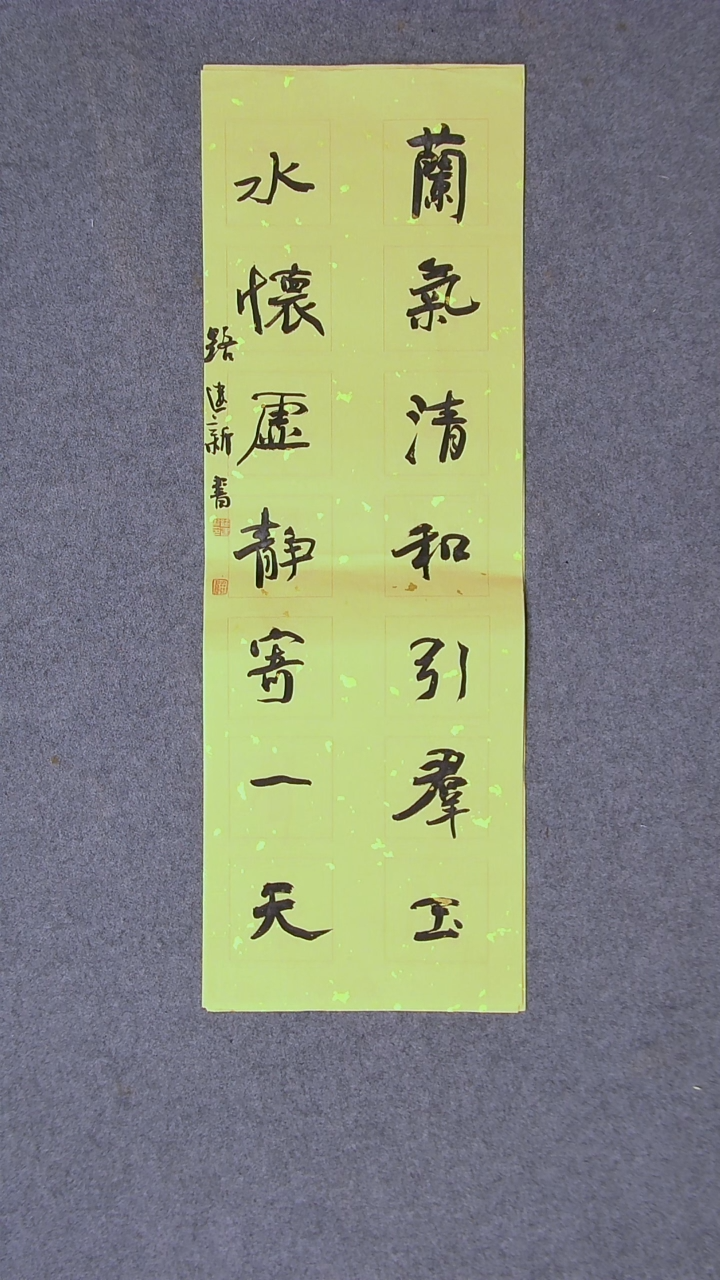 蘭氣清和引羣玉
水懷虛靜寄一天
路建新書